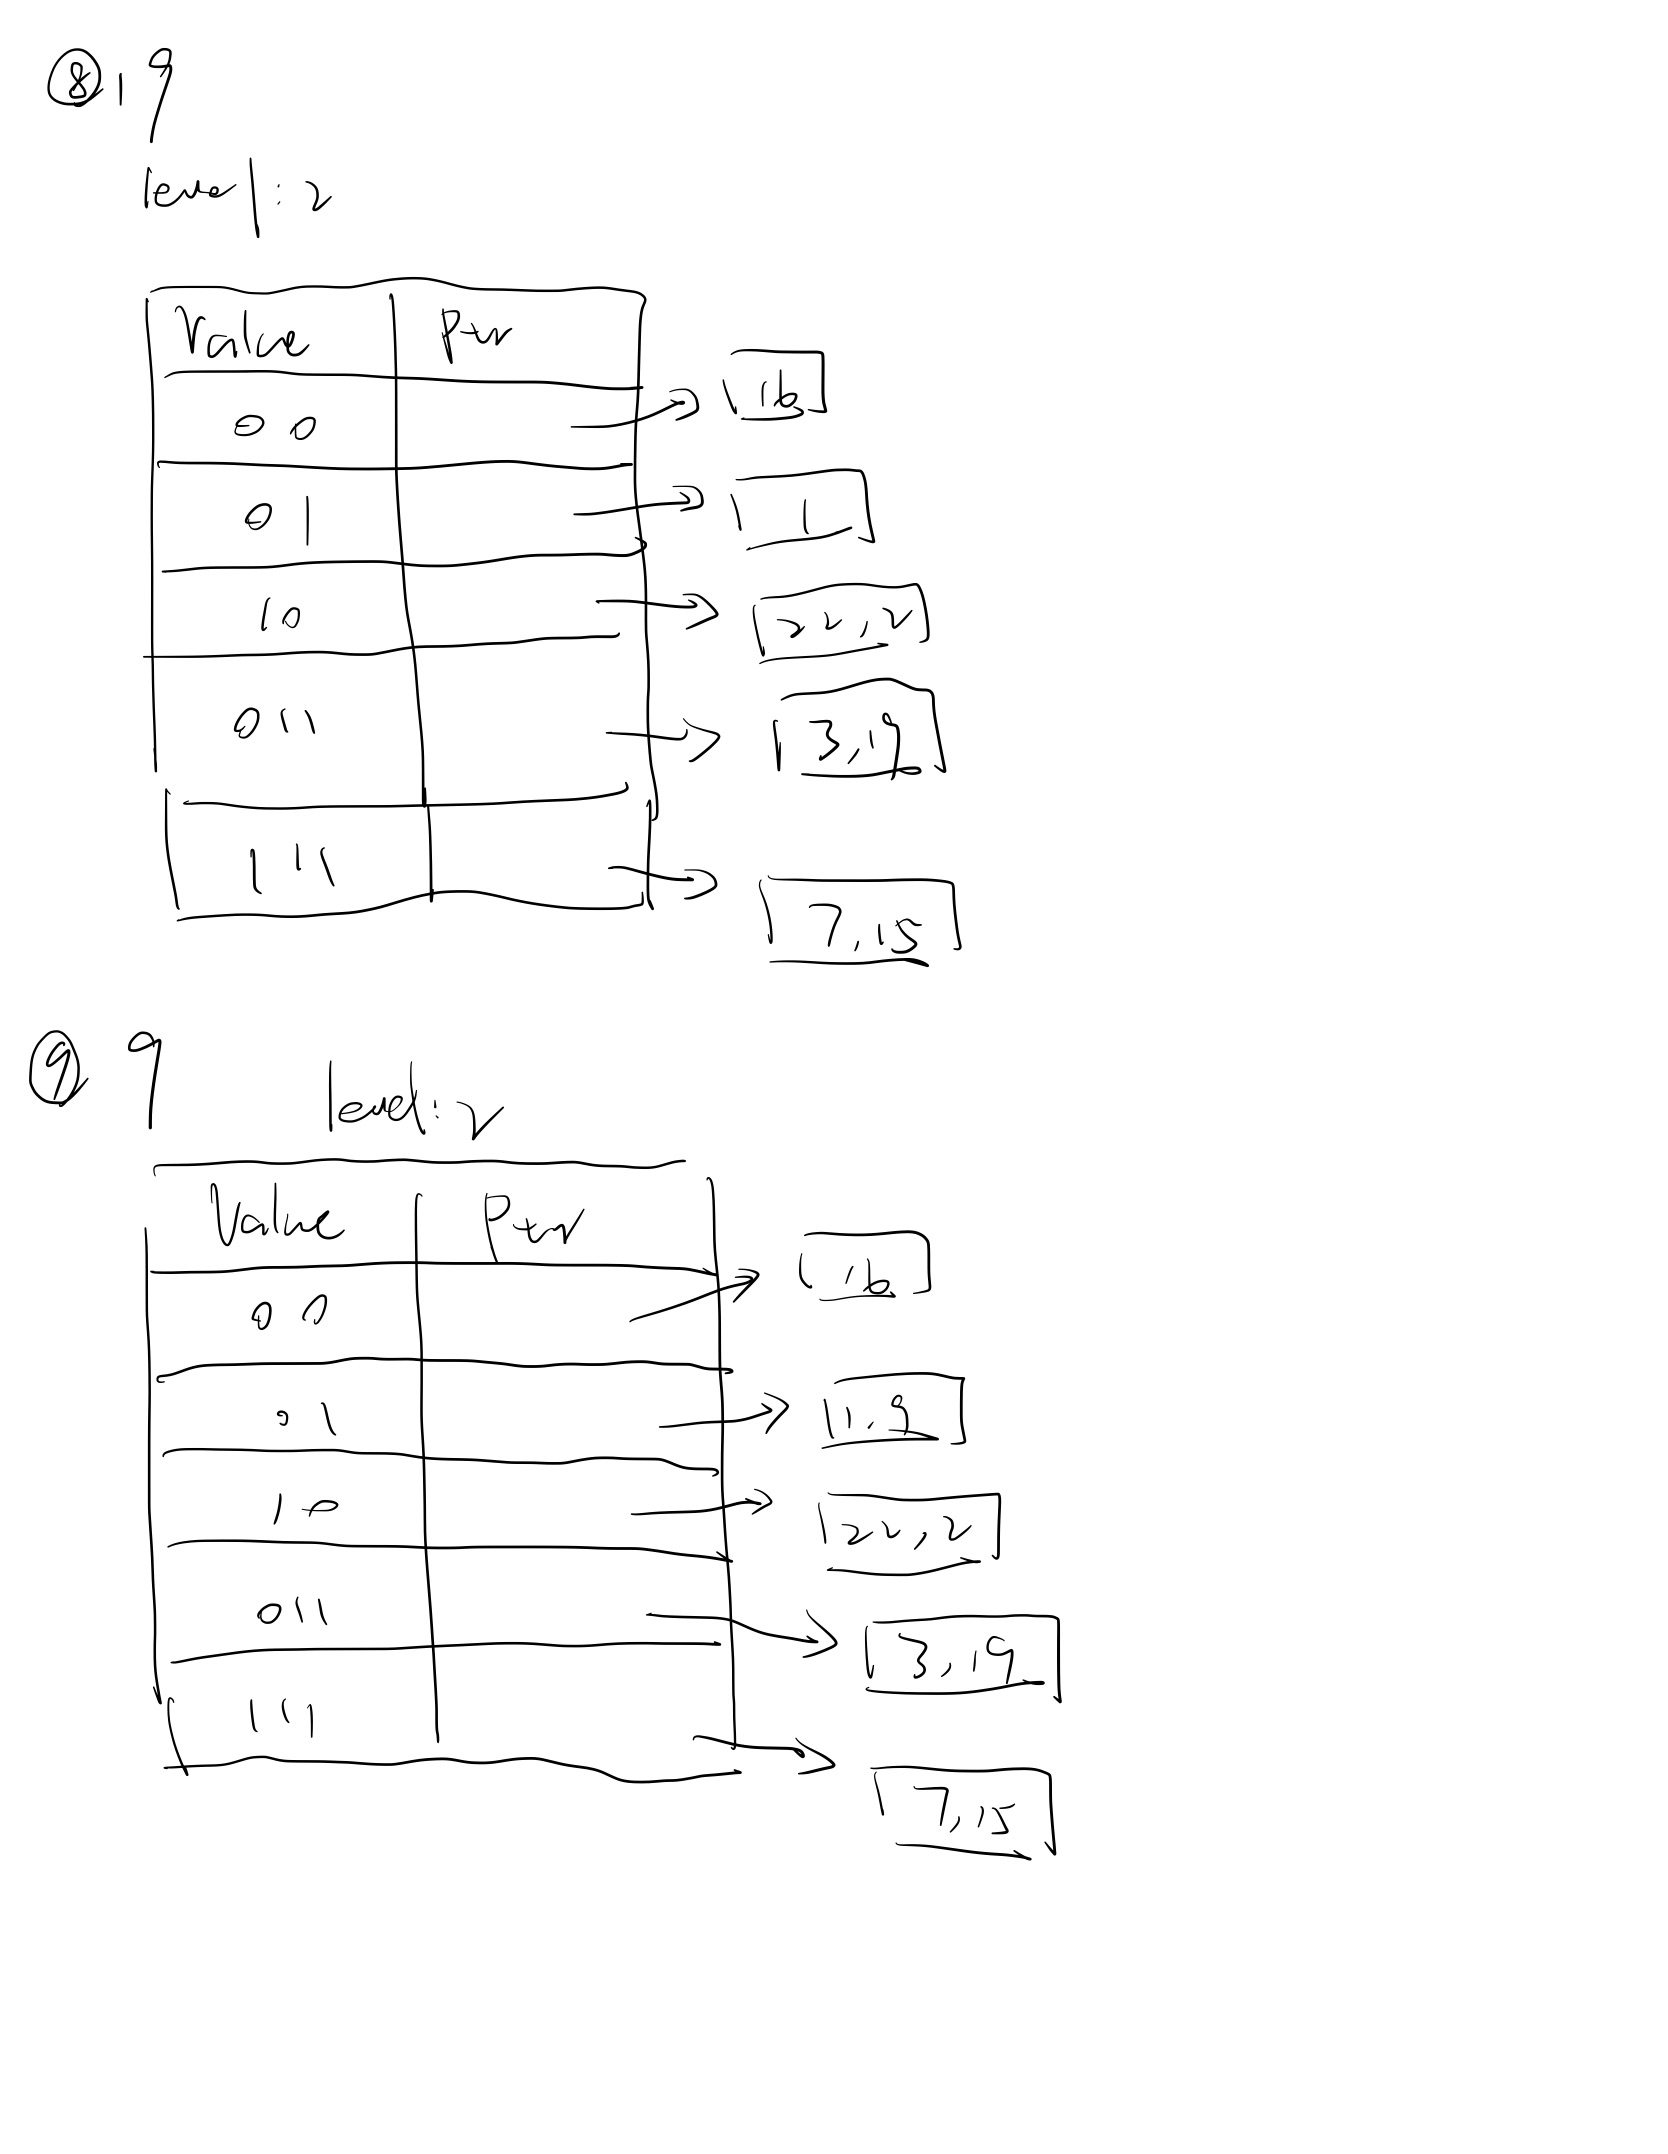 ⑧ 19
level: 2
Value Ptr
00 16
01 1
10 22, 2
011 3, 19
111 7, 15
⑨ 9
level: 2
Value Ptr
00 16
01 1, 9
10 22, 2
011 3, 19
111 7, 15